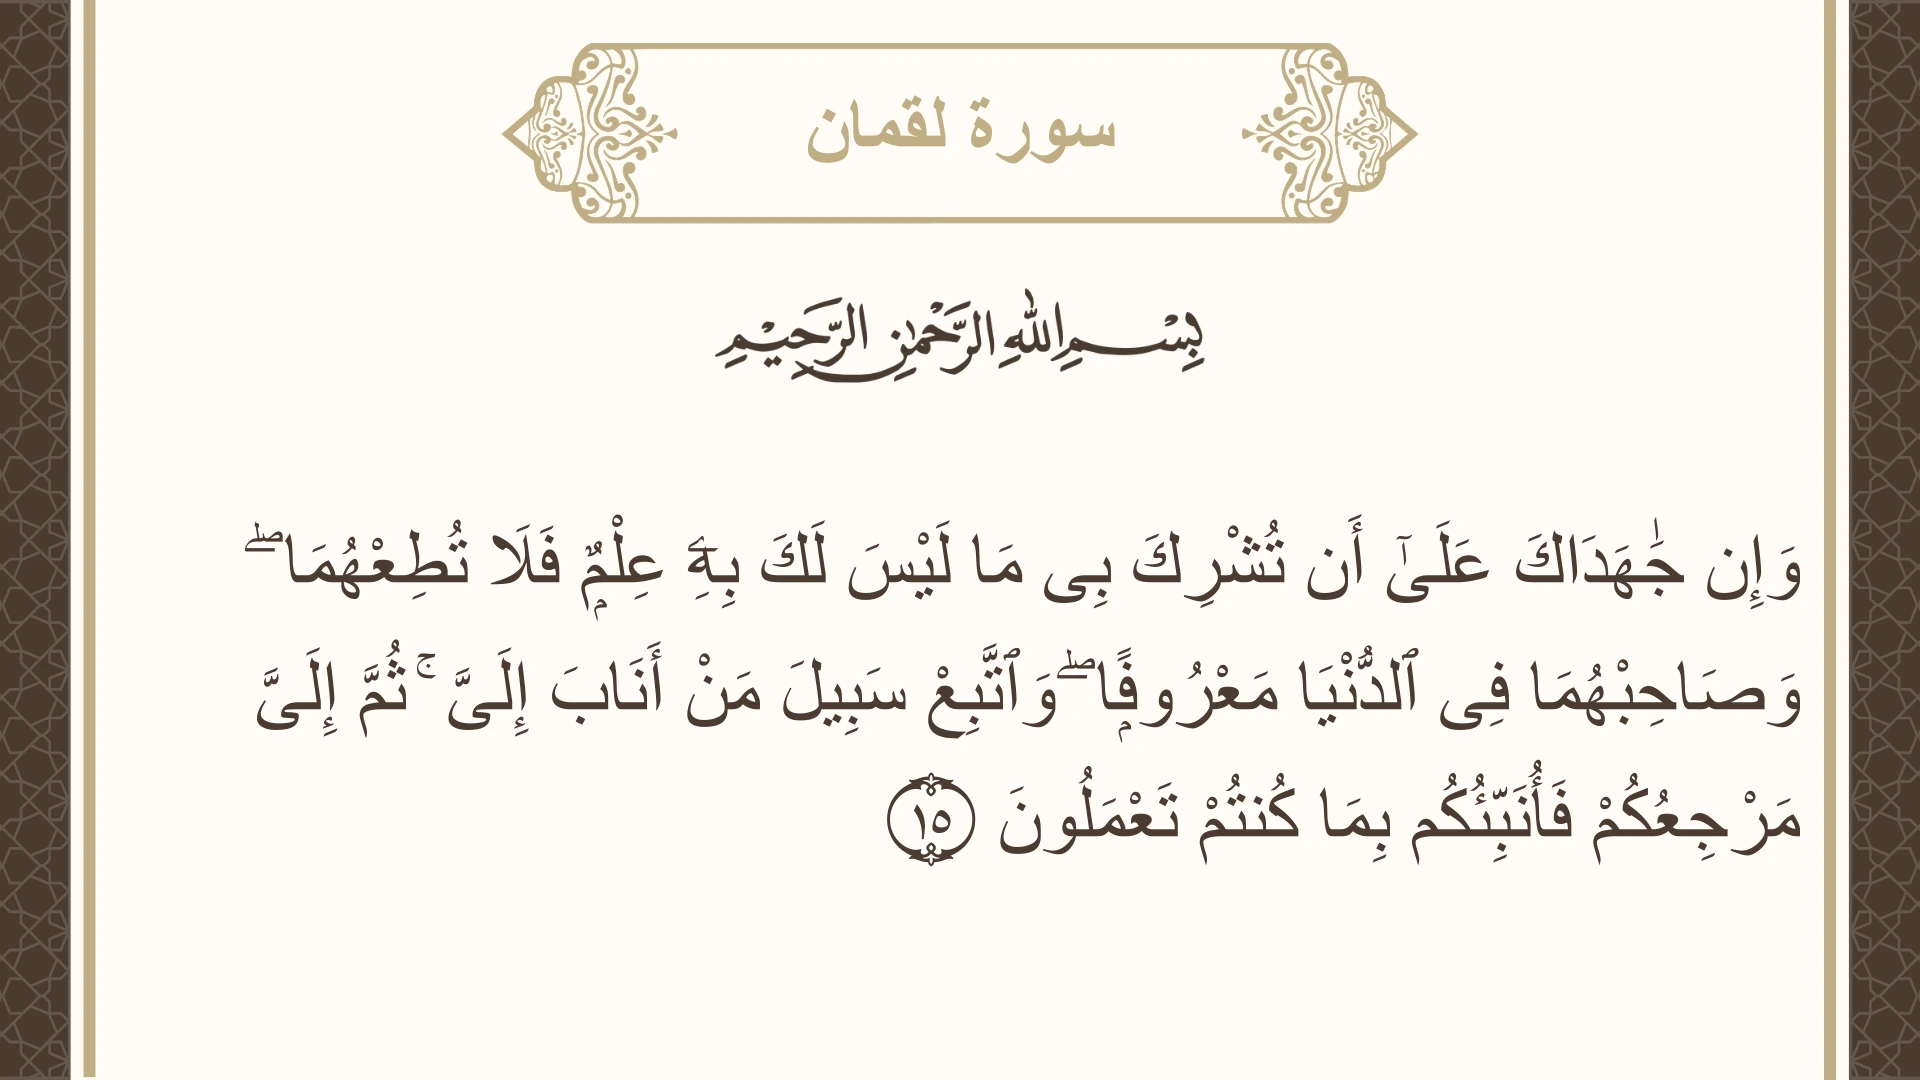 سورة لقمان
بِسْمِ اللهِ الرَّحْمٰنِ الرَّحِيْمِ
وَإِن جَٰهَدَاكَ عَلَىٰٓ أَن تُشْرِكَ بِى مَا لَيْسَ لَكَ بِهِۦ عِلْمٌۭ فَلَا تُطِعْهُمَا ۖ
وَصَاحِبْهُمَا فِى ٱلدُّنْيَا مَعْرُوفًۭا ۖ وَٱتَّبِعْ سَبِيلَ مَنْ أَنَابَ إِلَىَّ ۚ ثُمَّ إِلَىَّ
مَرْجِعُكُمْ فَأُنَبِّئُكُم بِمَا كُنتُمْ تَعْمَلُونَ ١٥